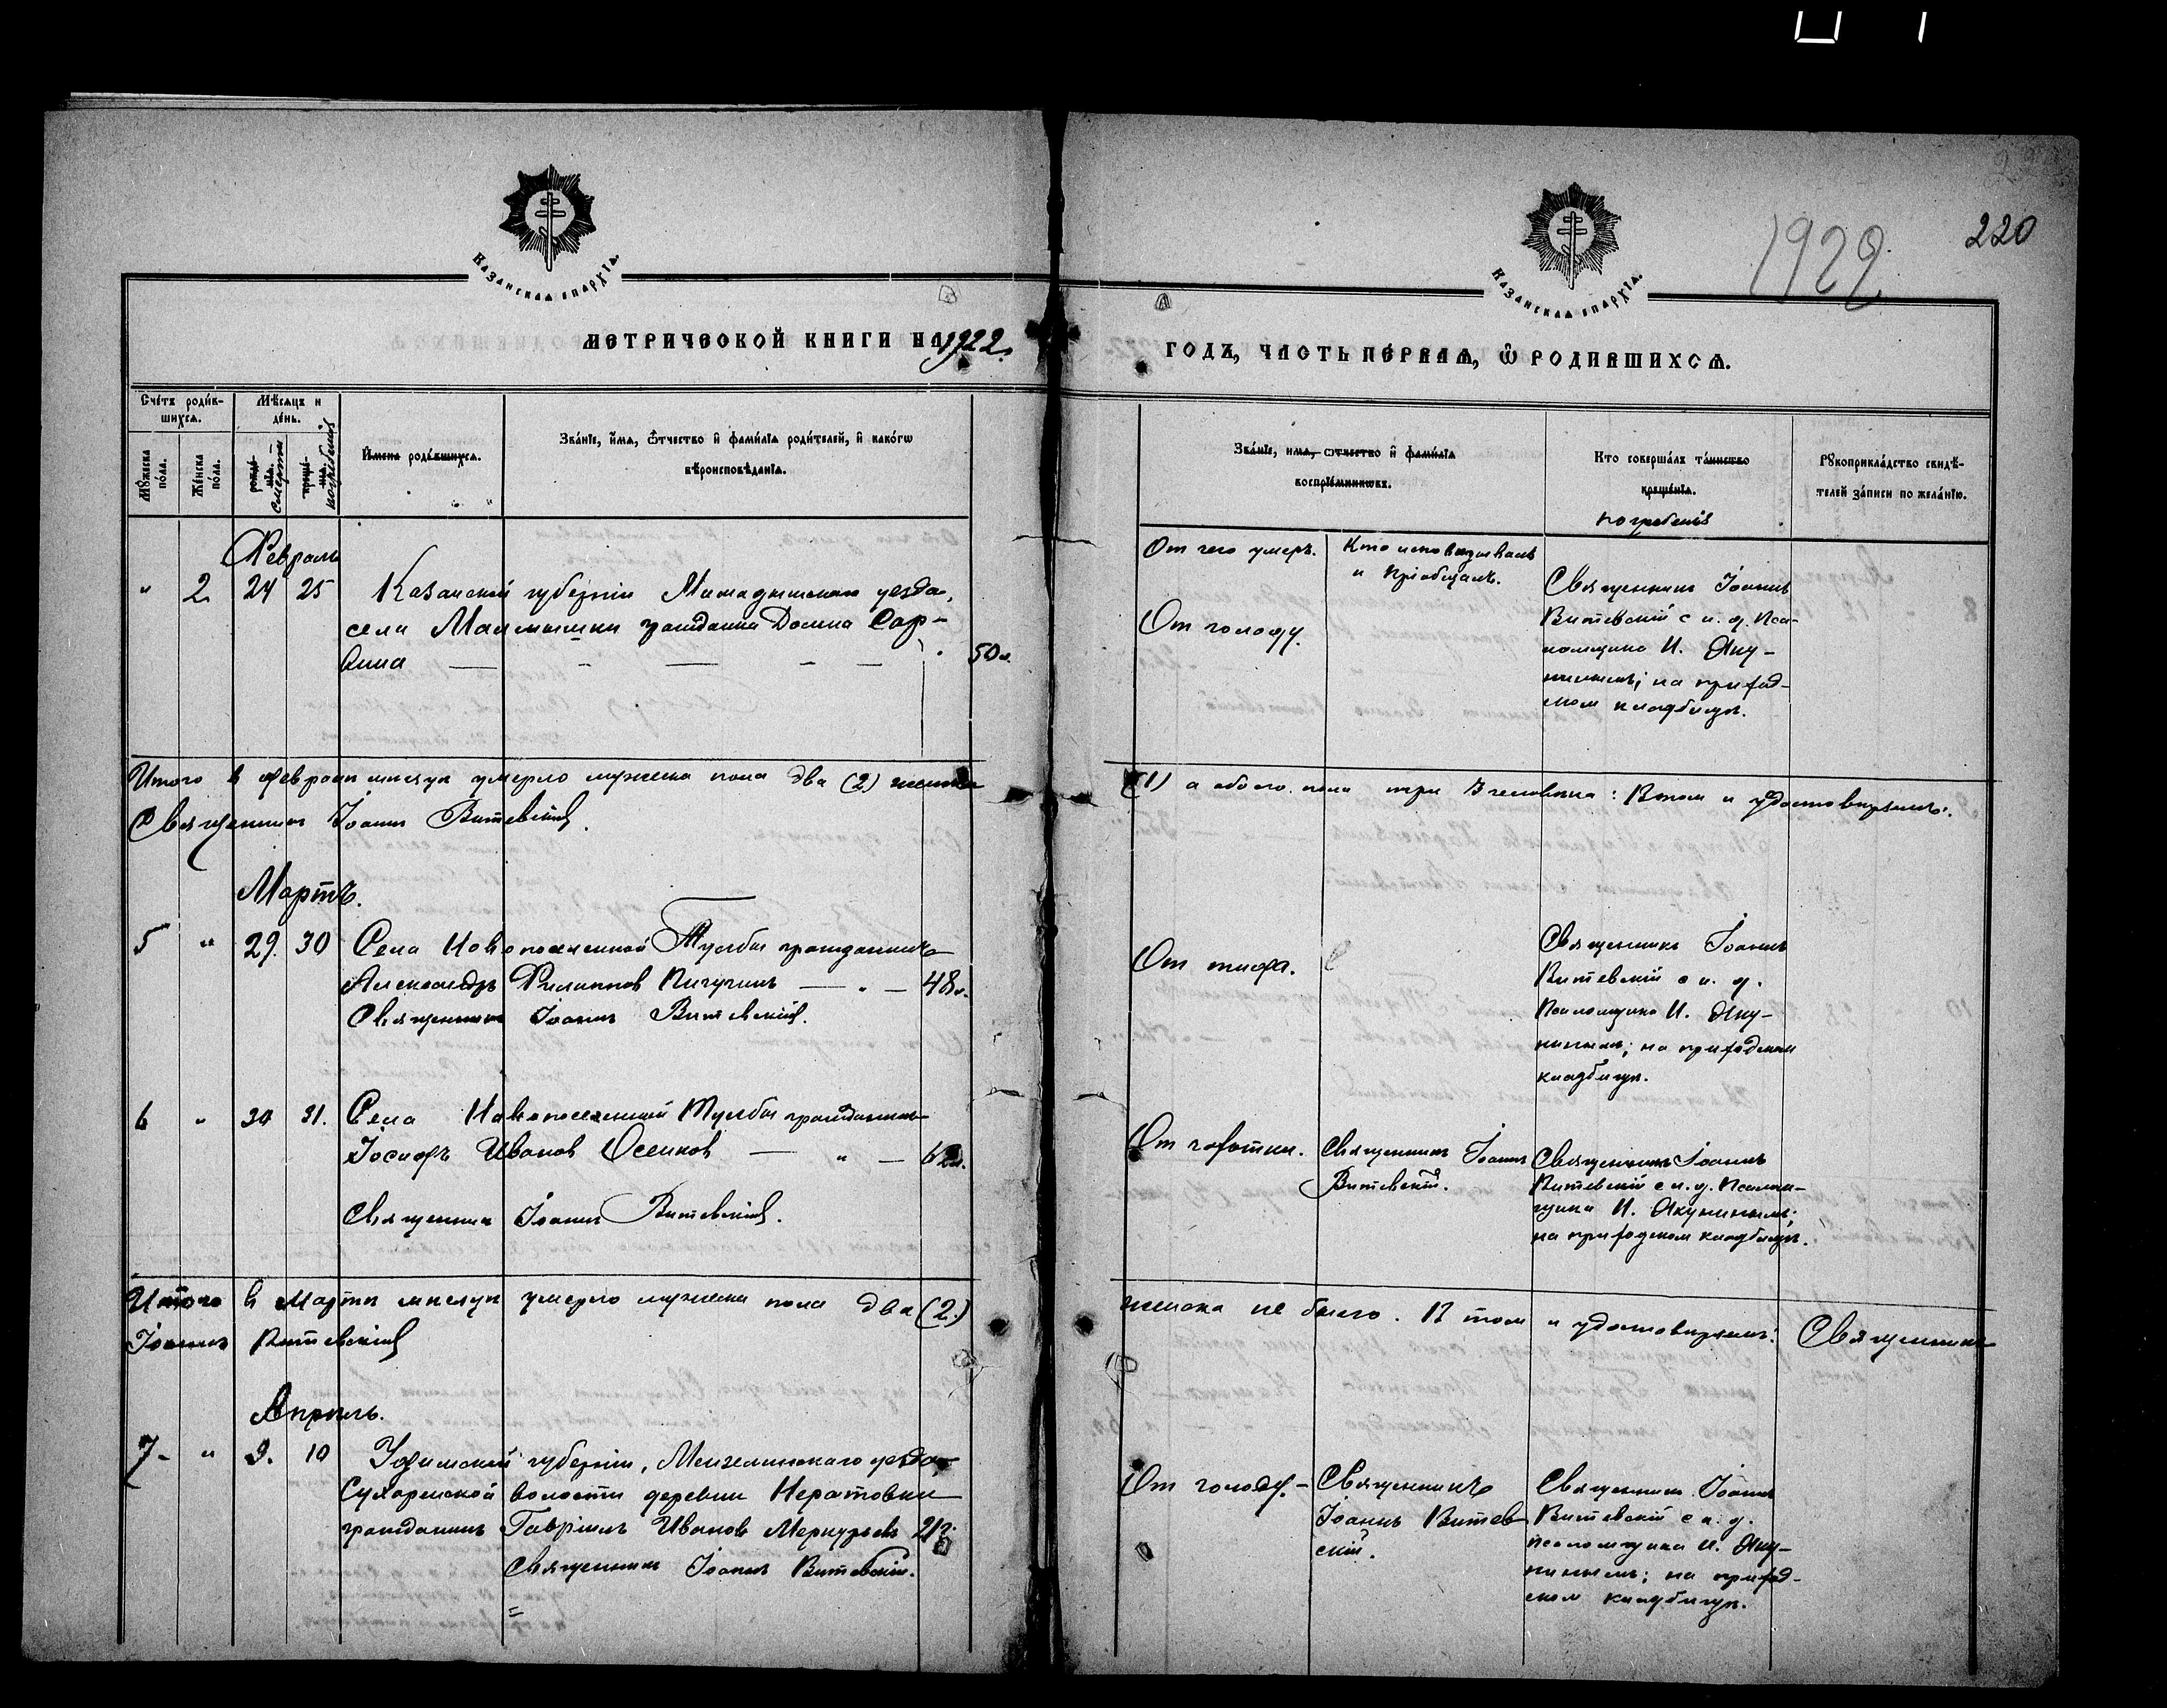 1922
220
КАЗАНСКАЯ ЕПАРХІЯ.
КАЗАНСКАЯ ЕПАРХІЯ.
МЕТРИЧЕСКОЙ КНИГИ НА 1922 г.
ГОДЪ, ЧАСТЬ ПЕРВАЯ, Ѡ РОДИВШИХСЯ.
Счетъ родившихся.
Мѣсяцъ и день.
Мужеска пола.
Женска пола.
рожденія. смерти
крещенія. погребенія
Имена родившихся.
Званіе, имя, отчество и фамилія родителей, и какогѡ
вѣроисповѣданія.
Званіе, имя, отчество и фамилія
воспріемниковъ.
Кто совершалъ таинство
крещенія.
погребенія
Рукоприкладство свидѣ-
телей записи по желанію.
От чего умеръ.
Кто исповѣдывалъ
и пріобщалъ.
Февраль
" 2 24 25 Казанской губерніи Мамадышскаго уезда,
села гражданка Домна Сар-
кина 50 л.
От голоду.
Священник Іоанн
Витевскій с и. д. Пса-
ломщика И. Яку-
ниным; на приход-
ском кладбищѣ.
Итого в феврале мѣсяцѣ умерло мужеска пола два (2) женска
(1) а обоего пола три 3 человѣка: В том и удостовѣряем:
Священник Іоанн Витевскій.
Мартъ.
5 " 29. 30 Села Новопоселенной Тумбы гражданинъ
Александръ Филиппов Пичугин — 48 л.
Священник Іоанн Витевскій.
От тифа.
Священникъ Іоанн
Витевскій с и. д.
Псаломщика И. Яку-
ниным; на приходском
кладбищѣ.
6 " 30 31. Села Новопоселенной Тумбы гражданин
Іосифъ Иванов Осенков — " — 62 л.
Священник Іоанн Витевскій.
От чахотки.
Священник Іоанн
Витевскій.
Священникъ Іоанн
Витевскій с и. д. Псалом-
щика И. Якуниным;
на приходском кладбищѣ.
Итого в Мартѣ мѣсяцѣ умерло мужеска пола два (2.)
женска не было. В том и удостовѣряем: Священник
Іоанн Витевскій
Апрѣль.
7 - " 9. 10 Уфимской губерніи, Мензелинскаго уезда
Сухаревской волости деревни Нератовки
гражданин Гавріил Иванов Меркурьев 21 г.
Священник Іоанн Витевскій.
От голоду. -
Священникъ
Іоаннъ Витев-
скій.
Священник Іоанн
Витевскій с и. д.
псаломщика И. Яку-
ниным; на приход-
ском кладбищѣ.